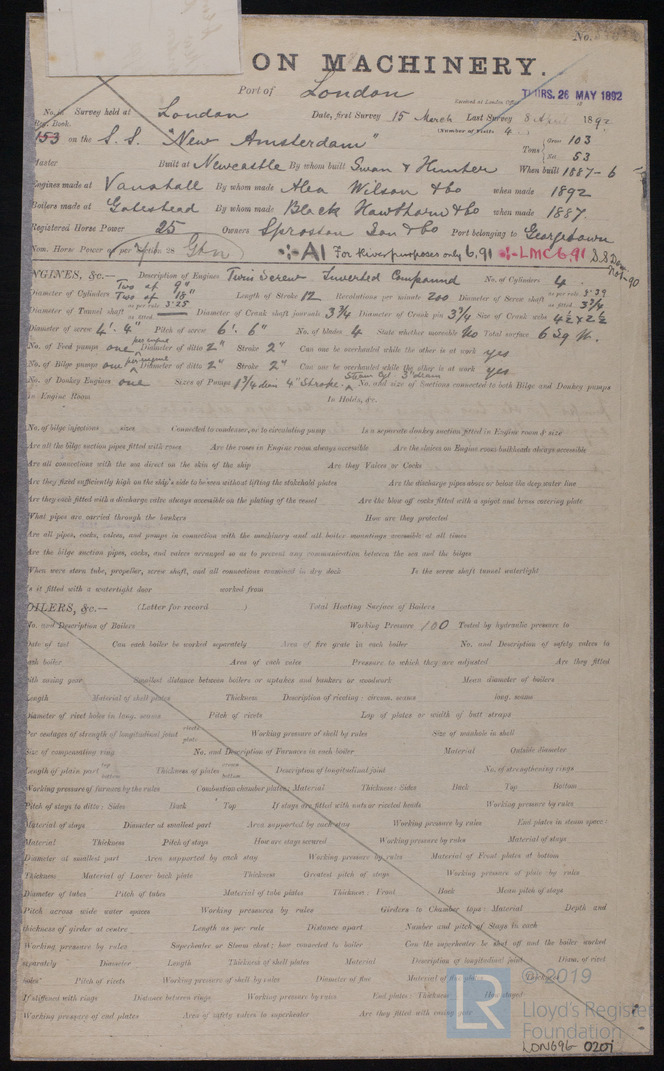 No.
ON MACHINERY.
Port of London
Received at London Office THURS. 26 MAY 1892
No. in Survey held at London Date, first Survey 15 March Last Survey 8 April 1892
Reg. Book. (Number of Visits 4
153 on the S. S. "New Amsterdam" Tons Gross 103 Net 53
Master Built at Newcastle By whom built Swan & Hunter When built 1887-6
Engines made at Vauxhall By whom made Alex Wilson & Co when made 1892
Boilers made at Gateshead By whom made Black Hawthorn & Co when made 1887.
Registered Horse Power 25 Owners Sproston Son & Co Port belonging to Georgetown
Nom. Horse Power as per 28
A1 For River purposes only 6,91 LMC 6,91
ENGINES, &c.— Description of Engines Twin Screw Inverted Compound No. of Cylinders 4
Diameter of Cylinders Two of 9" Two of 18" Length of Stroke 12 Revolutions per minute 200 Diameter of Screw shaft as per rule 3.39 as fitted 3 3/4
Diameter of Tunnel shaft as per rule 3.25 as fitted Diameter of Crank shaft journals 3 3/4 Diameter of Crank pin 3 3/4 Size of Crank webs 4 1/2 x 2 1/2
Diameter of screw 4'. 4" Pitch of screw 6'. 6" No. of blades 4 State whether moveable No Total surface 6 Sq ft.
No. of Feed pumps one per engine Diameter of ditto 2" Stroke 2" Can one be overhauled while the other is at work yes
No. of Bilge pumps one per engine Diameter of ditto 2" Stroke 2" Can one be overhauled while the other is at work yes
No. of Donkey Engines one Sizes of Pumps 1 3/4 diam 4" Stroke. Steam Cyl 3" diam No. and size of Suctions connected to both Bilge and Donkey pumps
In Engine Room In Holds, &c.
No. of bilge injections sizes Connected to condenser, or to circulating pump Is a separate donkey suction fitted in Engine room & size
Are all the bilge suction pipes fitted with roses Are the roses in Engine room always accessible Are the sluices on Engine room bulkheads always accessible
Are all connections with the sea direct on the skin of the ship Are they Valves or Cocks
Are they fixed sufficiently high on the ship's side to be seen without lifting the stokehold plates Are the discharge pipes above or below the deep water line
Are they each fitted with a discharge valve always accessible on the plating of the vessel Are the blow off cocks fitted with a spigot and brass covering plate
What pipes are carried through the bunkers How are they protected
Are all pipes, cocks, valves, and pumps in connection with the machinery and all boiler mountings accessible at all times
Are the bilge suction pipes, cocks, and valves arranged so as to prevent any communication between the sea and the bilges
When were stern tube, propeller, screw shaft, and all connections examined in dry dock Is the screw shaft tunnel watertight
Is it fitted with a watertight door worked from
BOILERS, &c.— (Letter for record ) Total Heating Surface of Boilers
No. and Description of Boilers Working Pressure 100 Tested by hydraulic pressure to
Date of test Can each boiler be worked separately Area of fire grate in each boiler No. and Description of safety valves to
each boiler Area of each valve Pressure to which they are adjusted Are they fitted
with easing gear Smallest distance between boilers or uptakes and bunkers or woodwork Mean diameter of boilers
Length Material of shell plates Thickness Description of riveting: circum. seams long. seams
Diameter of rivet holes in long. seams Pitch of rivets Lap of plates or width of butt straps
Per centages of strength of longitudinal joint rivets plate Working pressure of shell by rules Size of manhole in shell
Size of compensating ring No. and Description of Furnaces in each boiler Material Outside diameter
Length of plain part top bottom Thickness of plates crown bottom Description of longitudinal joint No. of strengthening rings
Working pressure of furnace by the rules Combustion chamber plates: Material Thickness: Sides Back Top Bottom
Pitch of stays to ditto: Sides Back Top If stays are fitted with nuts or riveted heads Working pressure by rules
Material of stays Diameter at smallest part Area supported by each stay Working pressure by rules End plates in steam space:
Material Thickness Pitch of stays How are stays secured Working pressure by rules Material of stays
Diameter at smallest part Area supported by each stay Working pressure by rules Material of Front plates at bottom
Thickness Material of Lower back plate Thickness Greatest pitch of stays Working pressure of plate by rules
Diameter of tubes Pitch of tubes Material of tube plates Thickness: Front Back Mean pitch of stays
Pitch across wide water spaces Working pressures by rules Girders to Chamber tops: Material Depth and
thickness of girder at centre Length as per rule Distance apart Number and pitch of Stays in each
Working pressure by rules Superheater or Steam chest; how connected to boiler Can the superheater be shut off and the boiler worked
separately Diameter Length Thickness of shell plates Material Description of longitudinal joint Diam. of rivet
holes Pitch of rivets Working pressure of shell by rules Diameter of flue Material of flue plates
If stiffened with rings Distance between rings Working pressure by rules End plates: Thickness How stayed
Working pressure of end plates Area of safety valves to superheater Are they fitted with easing gear
© 2019
LR Lloyd's Register
Foundation
LDN696-0201